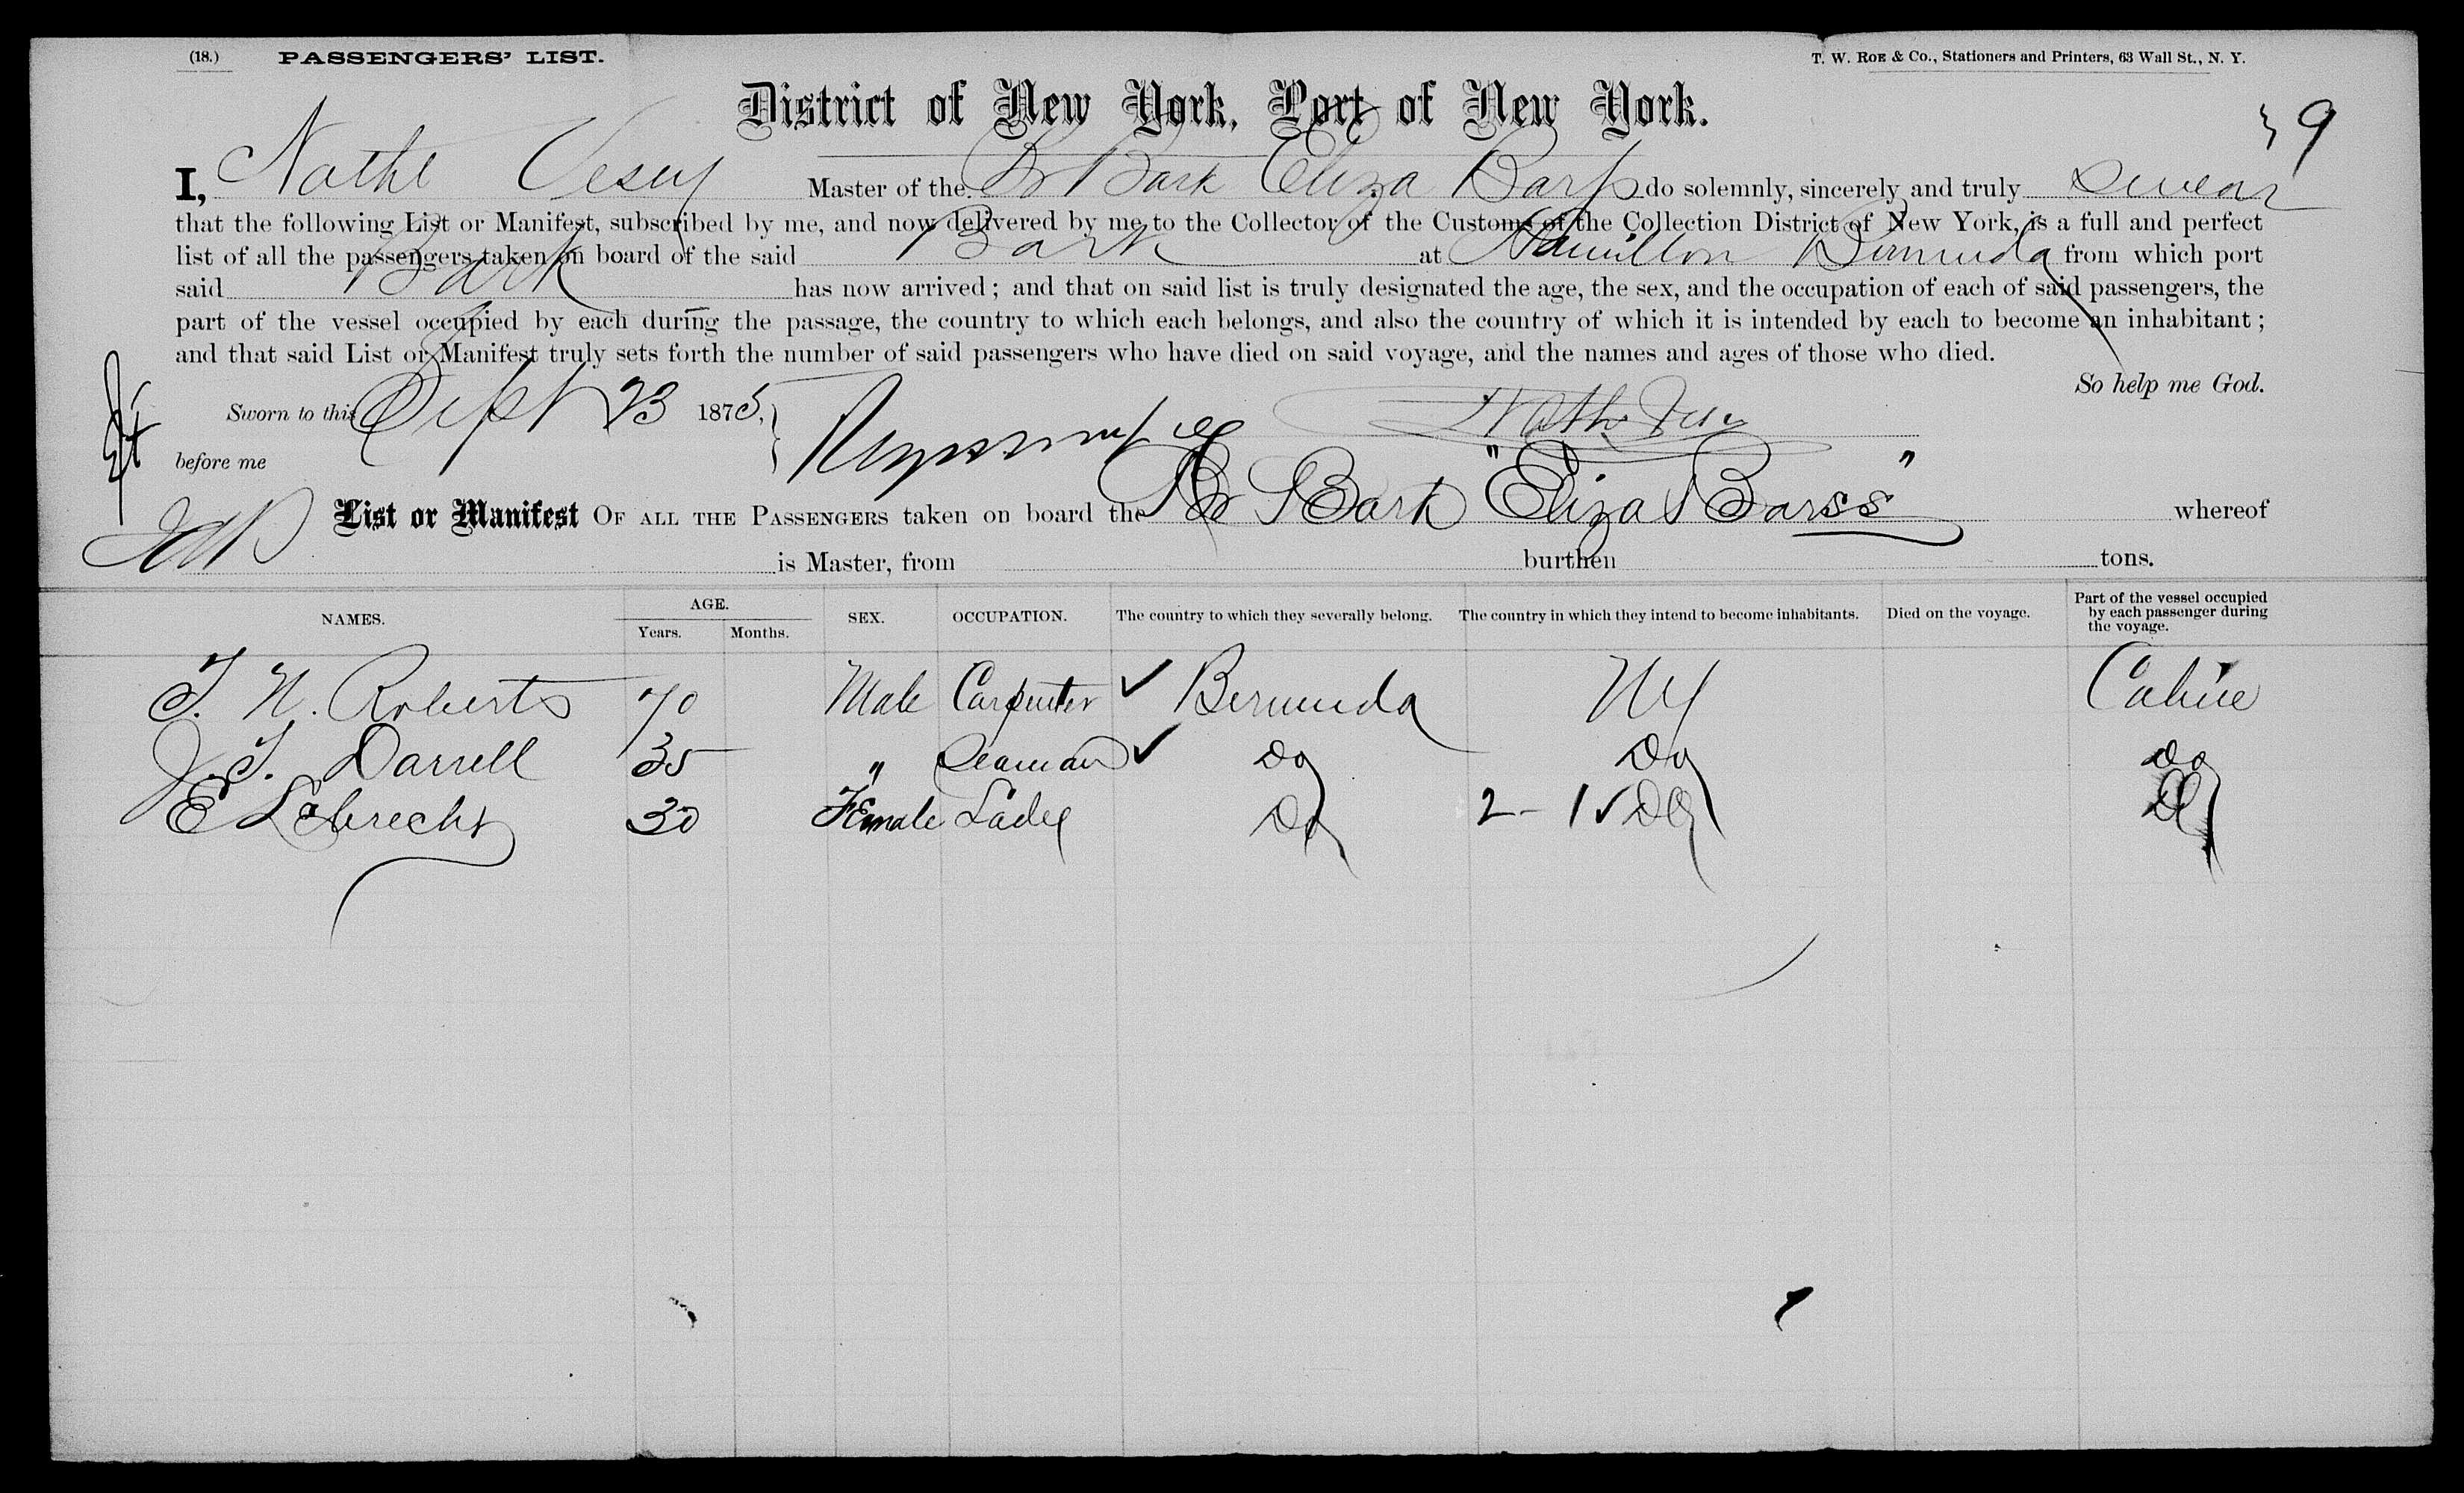 (18.) PASSENGERS' LIST. T. W. ROE & Co., Stationers and Printers, 63 Wall St., N. Y.
District of New York, Port of New York.
9
I, Nathl Vesey Master of the Br Bark Eliza Barss do solemnly, sincerely and truly swear
that the following List or Manifest, subscribed by me, and now delivered by me to the Collector of the Customs of the Collection District of New York, is a full and perfect
list of all the passengers taken on board of the said Bark at Hamilton Bermuda from which port
said Bark has now arrived; and that on said list is truly designated the age, the sex, and the occupation of each of said passengers, the
part of the vessel occupied by each during the passage, the country to which each belongs, and also the country of which it is intended by each to become an inhabitant;
and that said List or Manifest truly sets forth the number of said passengers who have died on said voyage, and the names and ages of those who died.
So help me God.
Sworn to this Sept 23 1875,
before me
List or Manifest OF ALL THE PASSENGERS taken on board the Br Bark "Eliza Barss" whereof
is Master, from burthen tons.
NAMES. AGE. Years. Months. SEX. OCCUPATION. The country to which they severally belong. The country in which they intend to become inhabitants. Died on the voyage. Part of the vessel occupied by each passenger during the voyage.
T. N. Roberts 70 Male Carpenter ✓ Bermuda NY Cabin
J. T. Darrell 35 " Seaman ✓ Do Do Do
E 30 Female Lady Do 2 - 1 ✓ Do Do